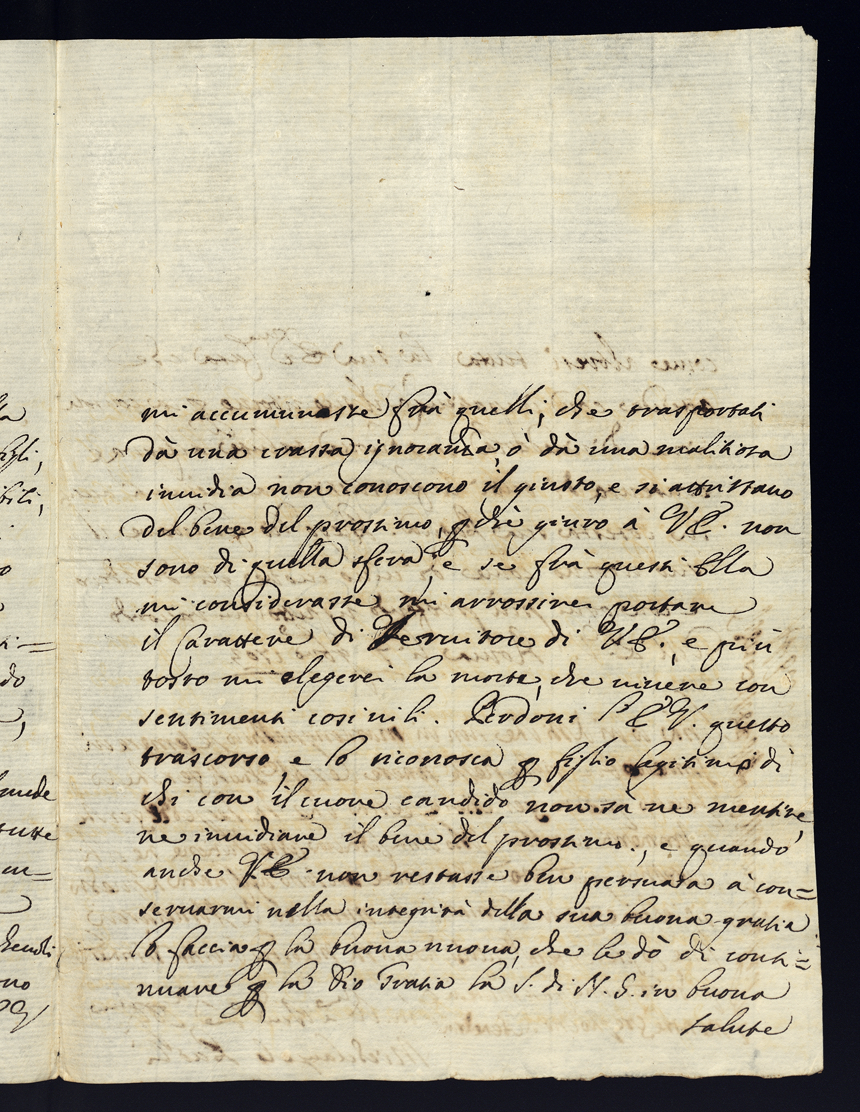 mi accumunasse frà quelli, che trasportati
dà una crassa ignoranza, ò dà una malitiosa
inuidia non conoscono il giusto, e si attristano
del bene del prossimo, p che giuro à VE. non
sono di quella sfera, e se frà questi Ella
mi considerasse mi arrossirei portare
il Carattere di Seruitore di VE., e più
tosto mi elegerei la morte, che uiuere con
sentimenti cosi uili. Perdoni l'EV. questo
trascorso, e lo riconosca p figlio legitimo di
chi con il cuore candido non sà ne mentire,
ne inuidiare il bene del prossimo., e quando
anche VE. non restasse ben persuasa à con=
seruarmi nella integrità della sua buona gratia
lo faccia p la buona nuoua, che le dò di conti=
nuare p la Dio Gratia la S. di N. S. in buona
salute